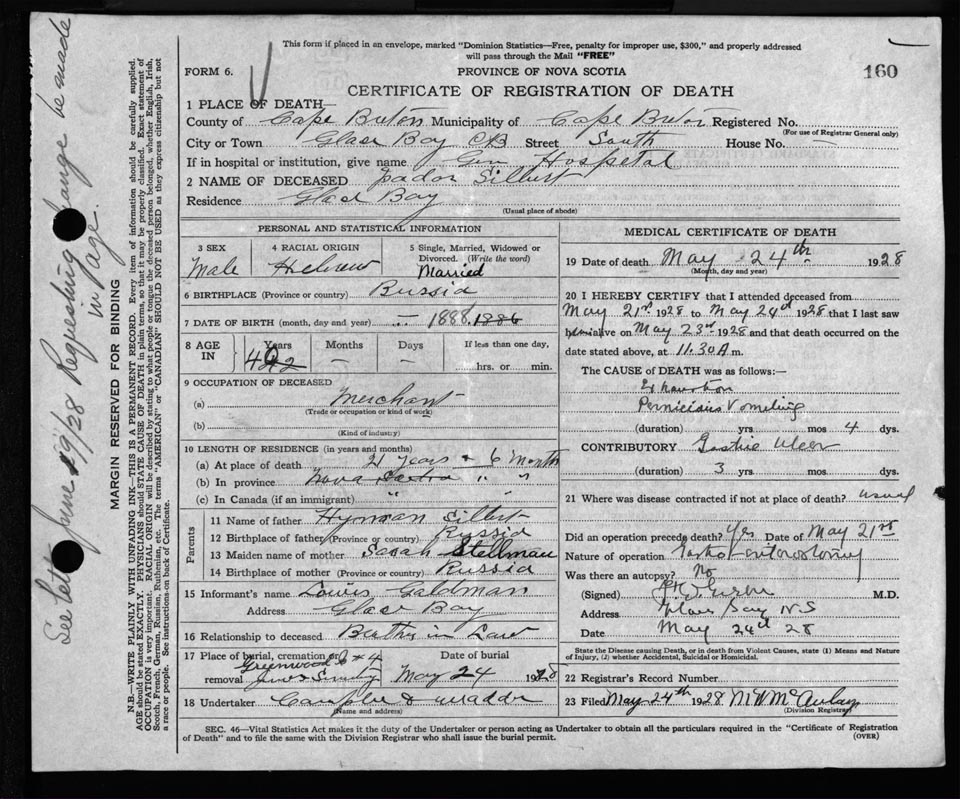 This form if placed in an envelope, marked "Dominion Statistics—Free, penalty for improper use, $300," and properly addressed
will pass through the Mail "FREE"
FORM 6.
PROVINCE OF NOVA SCOTIA
160
CERTIFICATE OF REGISTRATION OF DEATH
1 PLACE OF DEATH
County of Cape Breton Municipality of Cape Breton Registered No.
(For use of Registrar General only)
City or Town Glace Bay CB Street South House No. —
If in hospital or institution, give name Gen Hospital
2 NAME OF DECEASED Isador Silbert
Residence Glace Bay
(Usual place of abode)
PERSONAL AND STATISTICAL INFORMATION
3 SEX Male
4 RACIAL ORIGIN Hebrew
5 Single, Married, Widowed or Divorced. (Write the word) Married
6 BIRTHPLACE (Province or country) Russia
7 DATE OF BIRTH (month, day and year) — 1888 1886
8 AGE IN
Years Months Days If less than one day,
— — hrs. or min.
9 OCCUPATION OF DECEASED
(a) Merchant
(Trade or occupation or kind of work)
(b)
(Kind of industry)
10 LENGTH OF RESIDENCE (in years and months)
(a) At place of death 21 years + 6 Months
(b) In province Nova Scotia " "
(c) In Canada (if an immigrant) " "
Parents
11 Name of father Hyman Silbert
12 Birthplace of father (Province or country) Russia
13 Maiden name of mother Sarah Stellman
14 Birthplace of mother (Province or country) Russia
15 Informant's name Louis Galdman
Address Glace Bay
16 Relationship to deceased Brother in Law
17 Place of burial, cremation or removal Greenwood
Date of burial May 24 1928
18 Undertaker
(Name and address)
MEDICAL CERTIFICATE OF DEATH
19 Date of death May 24th 1928
(Month, day and year)
20 I HEREBY CERTIFY that I attended deceased from
May 21st 1928 to May 24th 1928 that I last saw
him alive on May 23rd 1928 and that death occurred on the
date stated above, at 11.30 A m.
The CAUSE of DEATH was as follows:—
Exhaustion
Pernicious Vomiting
(duration) yrs. mos 4 dys.
CONTRIBUTORY Gastric Ulcer
(duration) 3 yrs. mos. dys.
21 Where was disease contracted if not at place of death? usual
Did an operation precede death? Yes Date of May 21st
Nature of operation Gastro-enterostomy
Was there an autopsy? No
(Signed) M.D.
Address Glace Bay N.S
Date May 24th 28
State the Disease causing Death, or in death from Violent Causes, state (1) Means and Nature
of Injury, (2) whether Accidental, Suicidal or Homicidal.
22 Registrar's Record Number
23 Filed May 24th 1928 M W McAulay
(Division Registrar)
SEC. 46—Vital Statistics Act makes it the duty of the Undertaker or person acting as Undertaker to obtain all the particulars required in the "Certificate of Registration
of Death" and to file the same with the Division Registrar who shall issue the burial permit.
(OVER)
MARGIN RESERVED FOR BINDING
N.B.—WRITE PLAINLY WITH UNFADING INK—THIS IS A PERMANENT RECORD. Every item of information should be carefully supplied.
AGE should be stated EXACTLY. PHYSICIANS should STATE CAUSE OF DEATH in plain terms, so that it may be properly classified. Exact statement of
OCCUPATION is very important. RACIAL ORIGIN will be described by stating to what people or tongue the deceased person belonged, whether English, Irish,
Scotch, French, German, Russian, Ruthenian, etc. The terms "AMERICAN" or "CANADIAN" SHOULD NOT BE USED as they express citizenship but not
a race or people. See instructions on back of Certificate.
See lett June 29/28 Requesting change be made
in age.